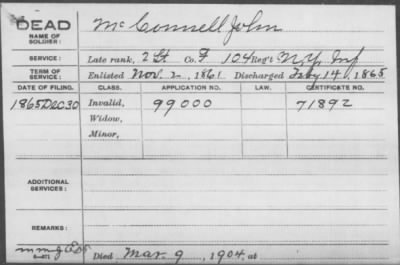 DEAD
NAME OF SOLDIER: McConnell John
SERVICE: Late rank, 2 Lt. Co. F 104 Reg't N.Y. Inf
TERM OF SERVICE: Enlisted Nov. 2, 1861 Discharged Feby 14, 1865
DATE OF FILING. CLASS. APPLICATION NO. LAW. CERTIFICATE NO.
1865 Dec 30 Invalid, 99000 71892
Widow,
Minor,
ADDITIONAL SERVICES:
REMARKS:
Died Mar. 9, 1904, at